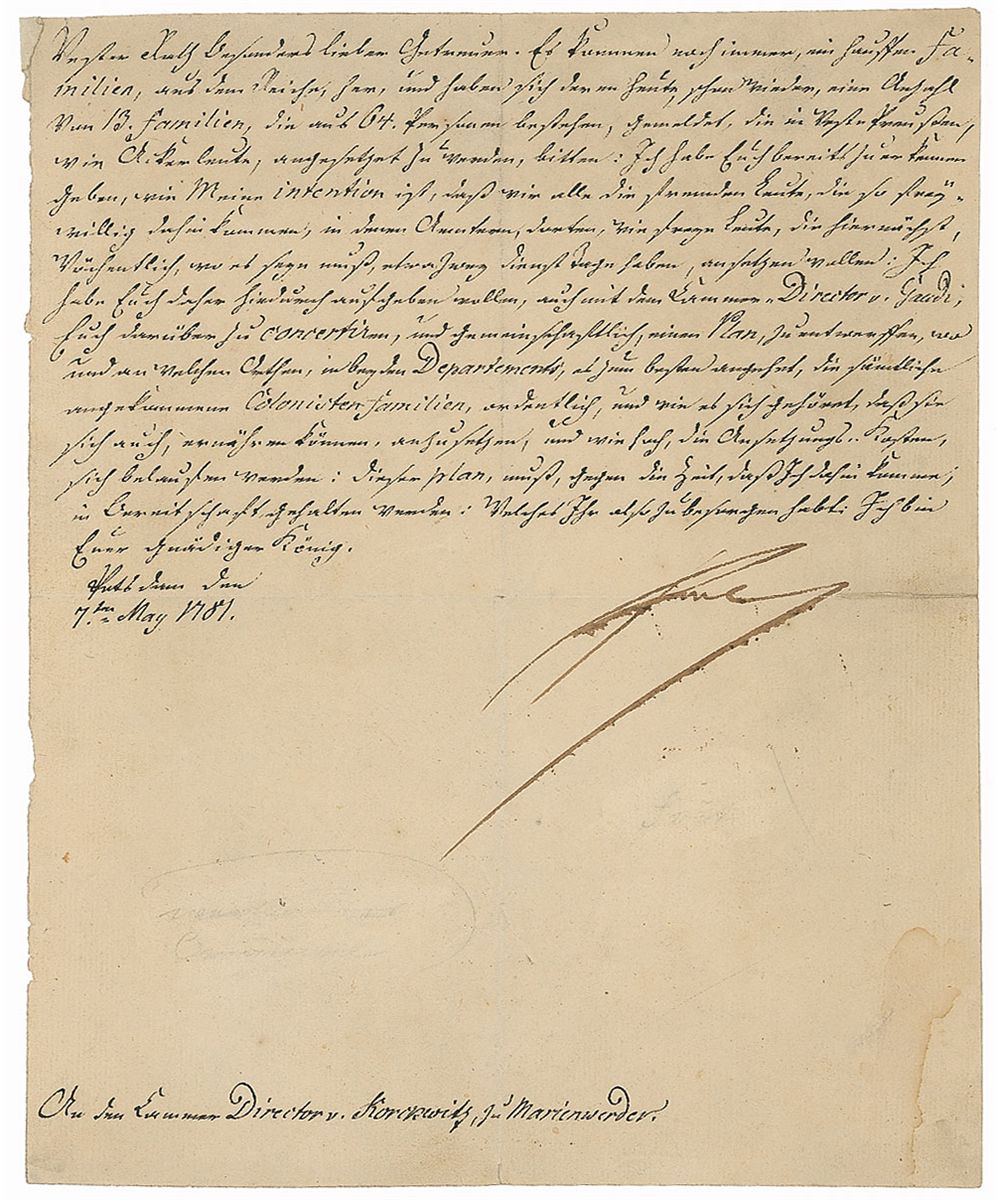 Vester Rath besonders lieber Getreuer. Es kommen noch immer, ein hauffen Fa-
milien, aus dem Reiche, her, und haben sich deren heute, schon wieder, eine Anzahl
von 13. Familien, die aus 64. Personen bestehen, gemeldet, die in West-Preußen,
wie Ackerleute, angesetzet zu werden, bitten: Ich habe Euch bereits zu erkennen
geben, wie Meine intention ist, daß wir alle die fremden Leute, die so frey-
willig dahin kommen, in denen Aemtern, dorten, wie freye Leute, die hiernächst,
Wöchentlich, wo es seyn muß, etwa zwey dienst Tage haben, ansetzen wollen: Ich
habe Euch daher hiedurch aufgeben wollen, auch mit dem Cammer-Director v. Gaudi,
Euch darüber zu concertiren, und gemeinschafftlich, einen Plan, zu entwerffen, wo
und an welchen Orthen, in beyden Departements, es zum besten angehet, die sämtliche
angekommene Colonisten familien, ordentlich, und wie es sich gehöret, daß sie
sich auch, ernähren können, anzusetzen, und wie hoch, die Ansetzungs-Kosten,
sich belauffen werden: dieser plan, muß, gegen die Zeit, daß Ich dahin komme,
in Bereitschafft gehalten werden: Welches Ihr also zu besorgen habt: Ich bin
Euer gnädiger König.
Potsdam den
7.ten May 1781.
An den Cammer Director v. Korckwitz, zu Marienwerder.